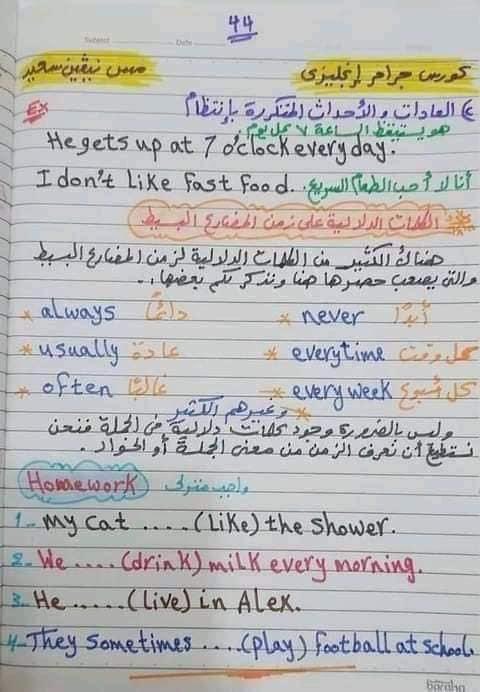 44
Subject Date
كورس جرامر إنجليزى مس نيڤين سعيد
٤) العادات والأحداث المتكررة بإنتظام
Ex
هو يستيقظ الساعة ٧ كل يوم.
He gets up at 7 o'clock every day.
I don't Like Fast Food. أنا لا أحب الطعام السريع
الكلمات الدلالية على زمن المضارع البسيط
هناك الكثير من الكلمات الدلالية لزمن المضارع البسيط
والتى يصعب حصرها هنا ونذكر لكم بعضها :.
* always دائمًا * never أبدًا
* usually عادة * everytime كل وقت
* often غالبًا * every week كل أسبوع
* وغيرهم الكثير
وليس بالضرورة وجود كلمات دلالية فى الجملة فنحن
نستطيع أن نعرف الزمن من معنى الجملة أو الحوار.
Homework واجب منزلى
1- My Cat .... (Like) the Shower.
2- We .... (drink) milk every morning.
3- He ..... (live) in Alex.
4- They Sometimes .... (play) Football at School.